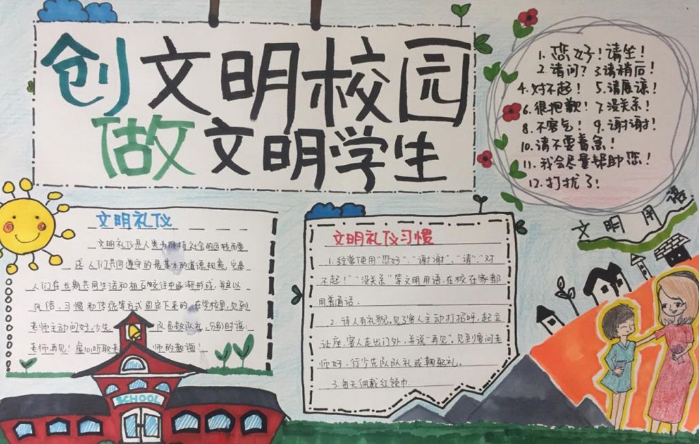 创文明校园
做文明学生
1. 您好！请坐！
2. 请问？3. 请稍后！
4. 对不起！ 5. 请原谅！
6. 很抱歉！ 7. 没关系！
8. 不客气！ 9. 谢谢！
10. 请不要着急！
11. 我会尽量帮助您！
12. 打扰了！
文明用语
文明礼仪
文明礼仪是人类为维持社会的正常
人们共同遵守的最基本的道德规范，它是
人们在长期共同生活和相互交往中逐渐形成，并且以
风俗、习惯和传统等方式固定下来的。在学校里，见到
老师主动问好，
老师再见！虚心听取老师的教诲！
文明礼仪习惯
1. 经常使用“您好”、“谢谢”、“请”、“对
不起！”“没关系”等文明用语，在校在家都
用普通话。
2. 待人有礼貌，见了客人主动打招呼，起立
让座，客人走出门外，并说“再见”，见到要问老
师好，行少先队队礼或鞠躬礼。
3. 每天佩戴红领巾
SCHOOL